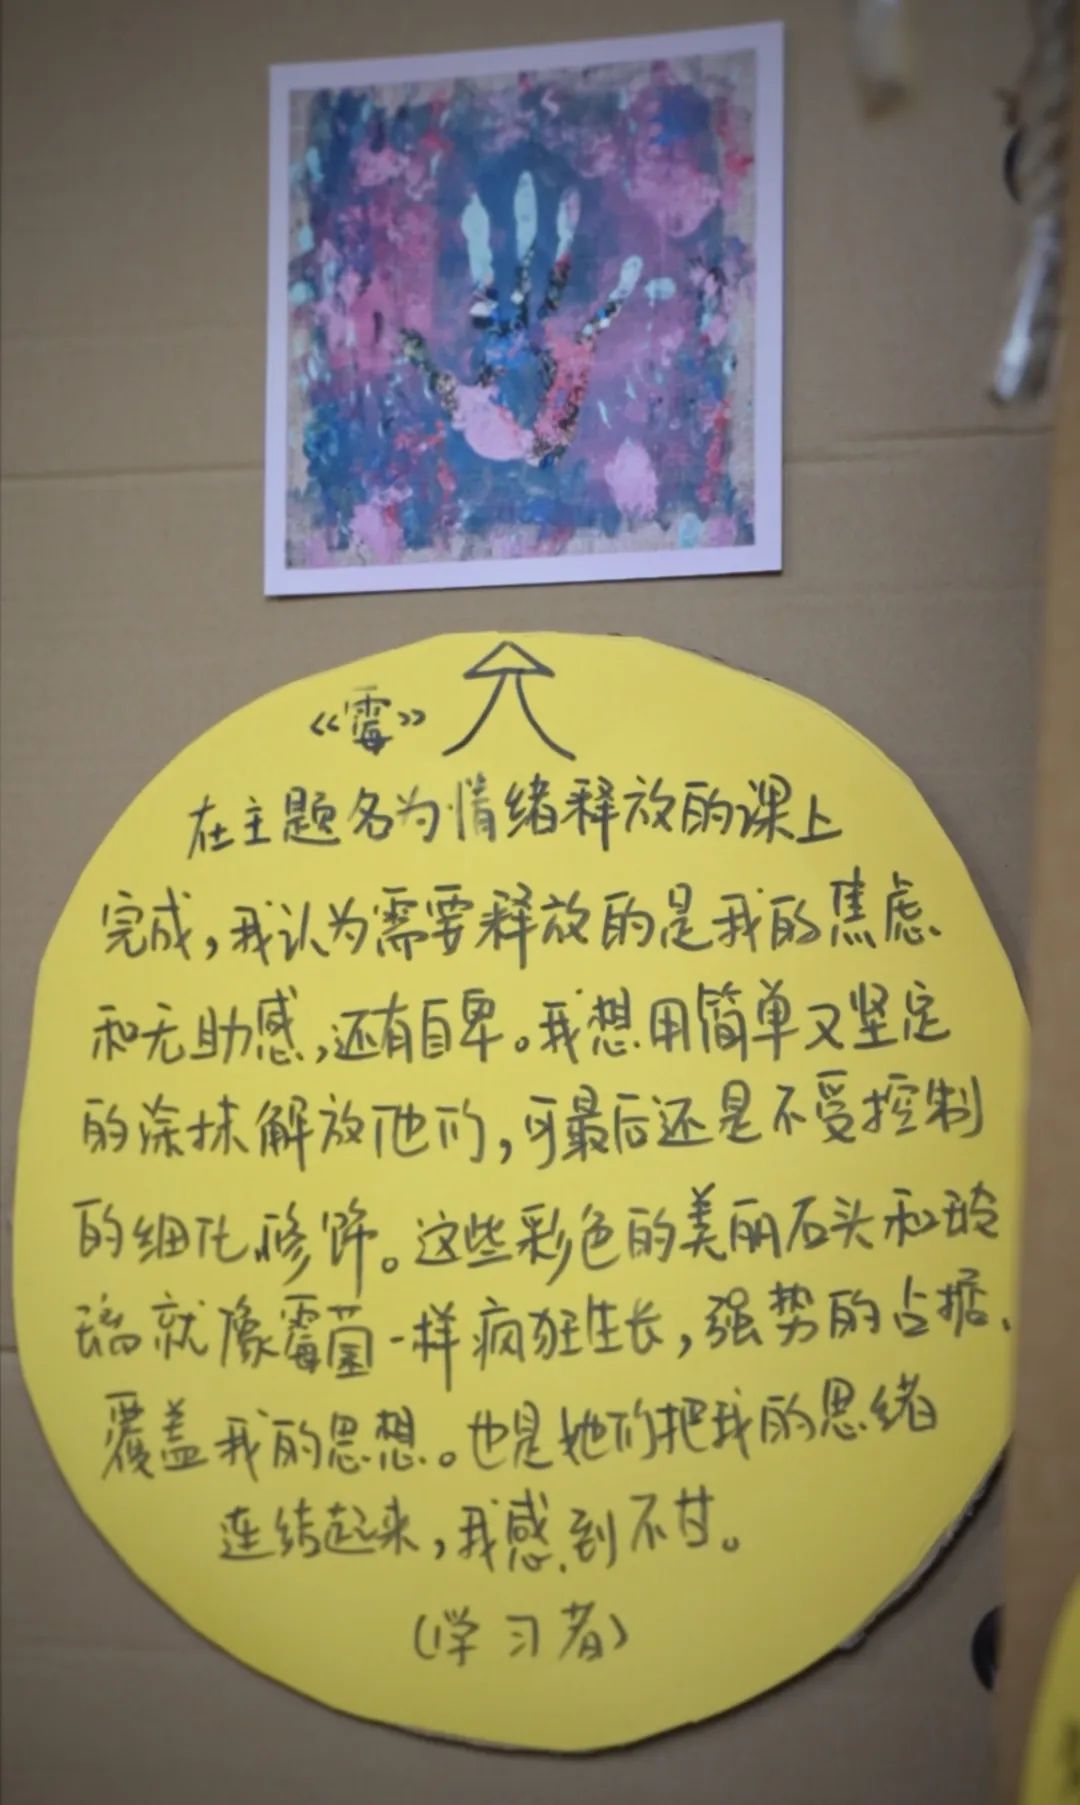 《霉》
在主题名为情绪释放的课上
完成，我认为需要释放的是我的焦虑
和无助感，还有自卑。我想用简单又坚定
的涂抹解放他们，可最后还是不受控制
的细化修饰。这些彩色的美丽石头和玻
璃就像霉菌一样疯狂生长，强势的占据、
覆盖我的思想。也是她们把我的思绪
连结起来，我感到不甘。
（学习者）